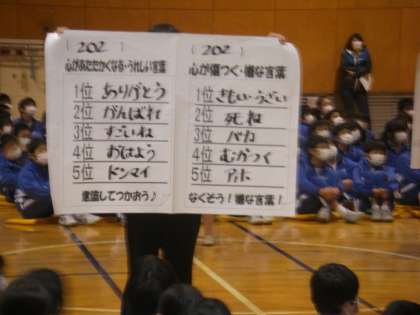 ( 202 )
心があたたかくなる・うれしい言葉
1位 ありがとう
2位 がんばれ
3位 すごいね
4位 おはよう
5位 ドンマイ
意識してつかおう♪
( 202 )
心が傷つく・嫌な言葉
1位 きもい・うざい
2位 死ね
3位 バカ
4位 むかつく
5位 アホ
なくそう！嫌な言葉！